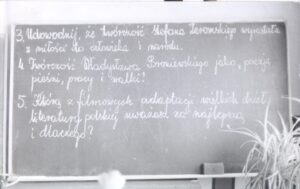 3. Udowodnij, że twórczość Stefana Żeromskiego wyrastała
z miłości do człowieka i narodu.
4. Twórczość Władysława Broniewskiego jako, poezja
pieśni, pracy i walki!
5. Którą z filmowych adaptacji wielkich dzieł
literatury polskiej uważasz za najlepszą
i dlaczego?